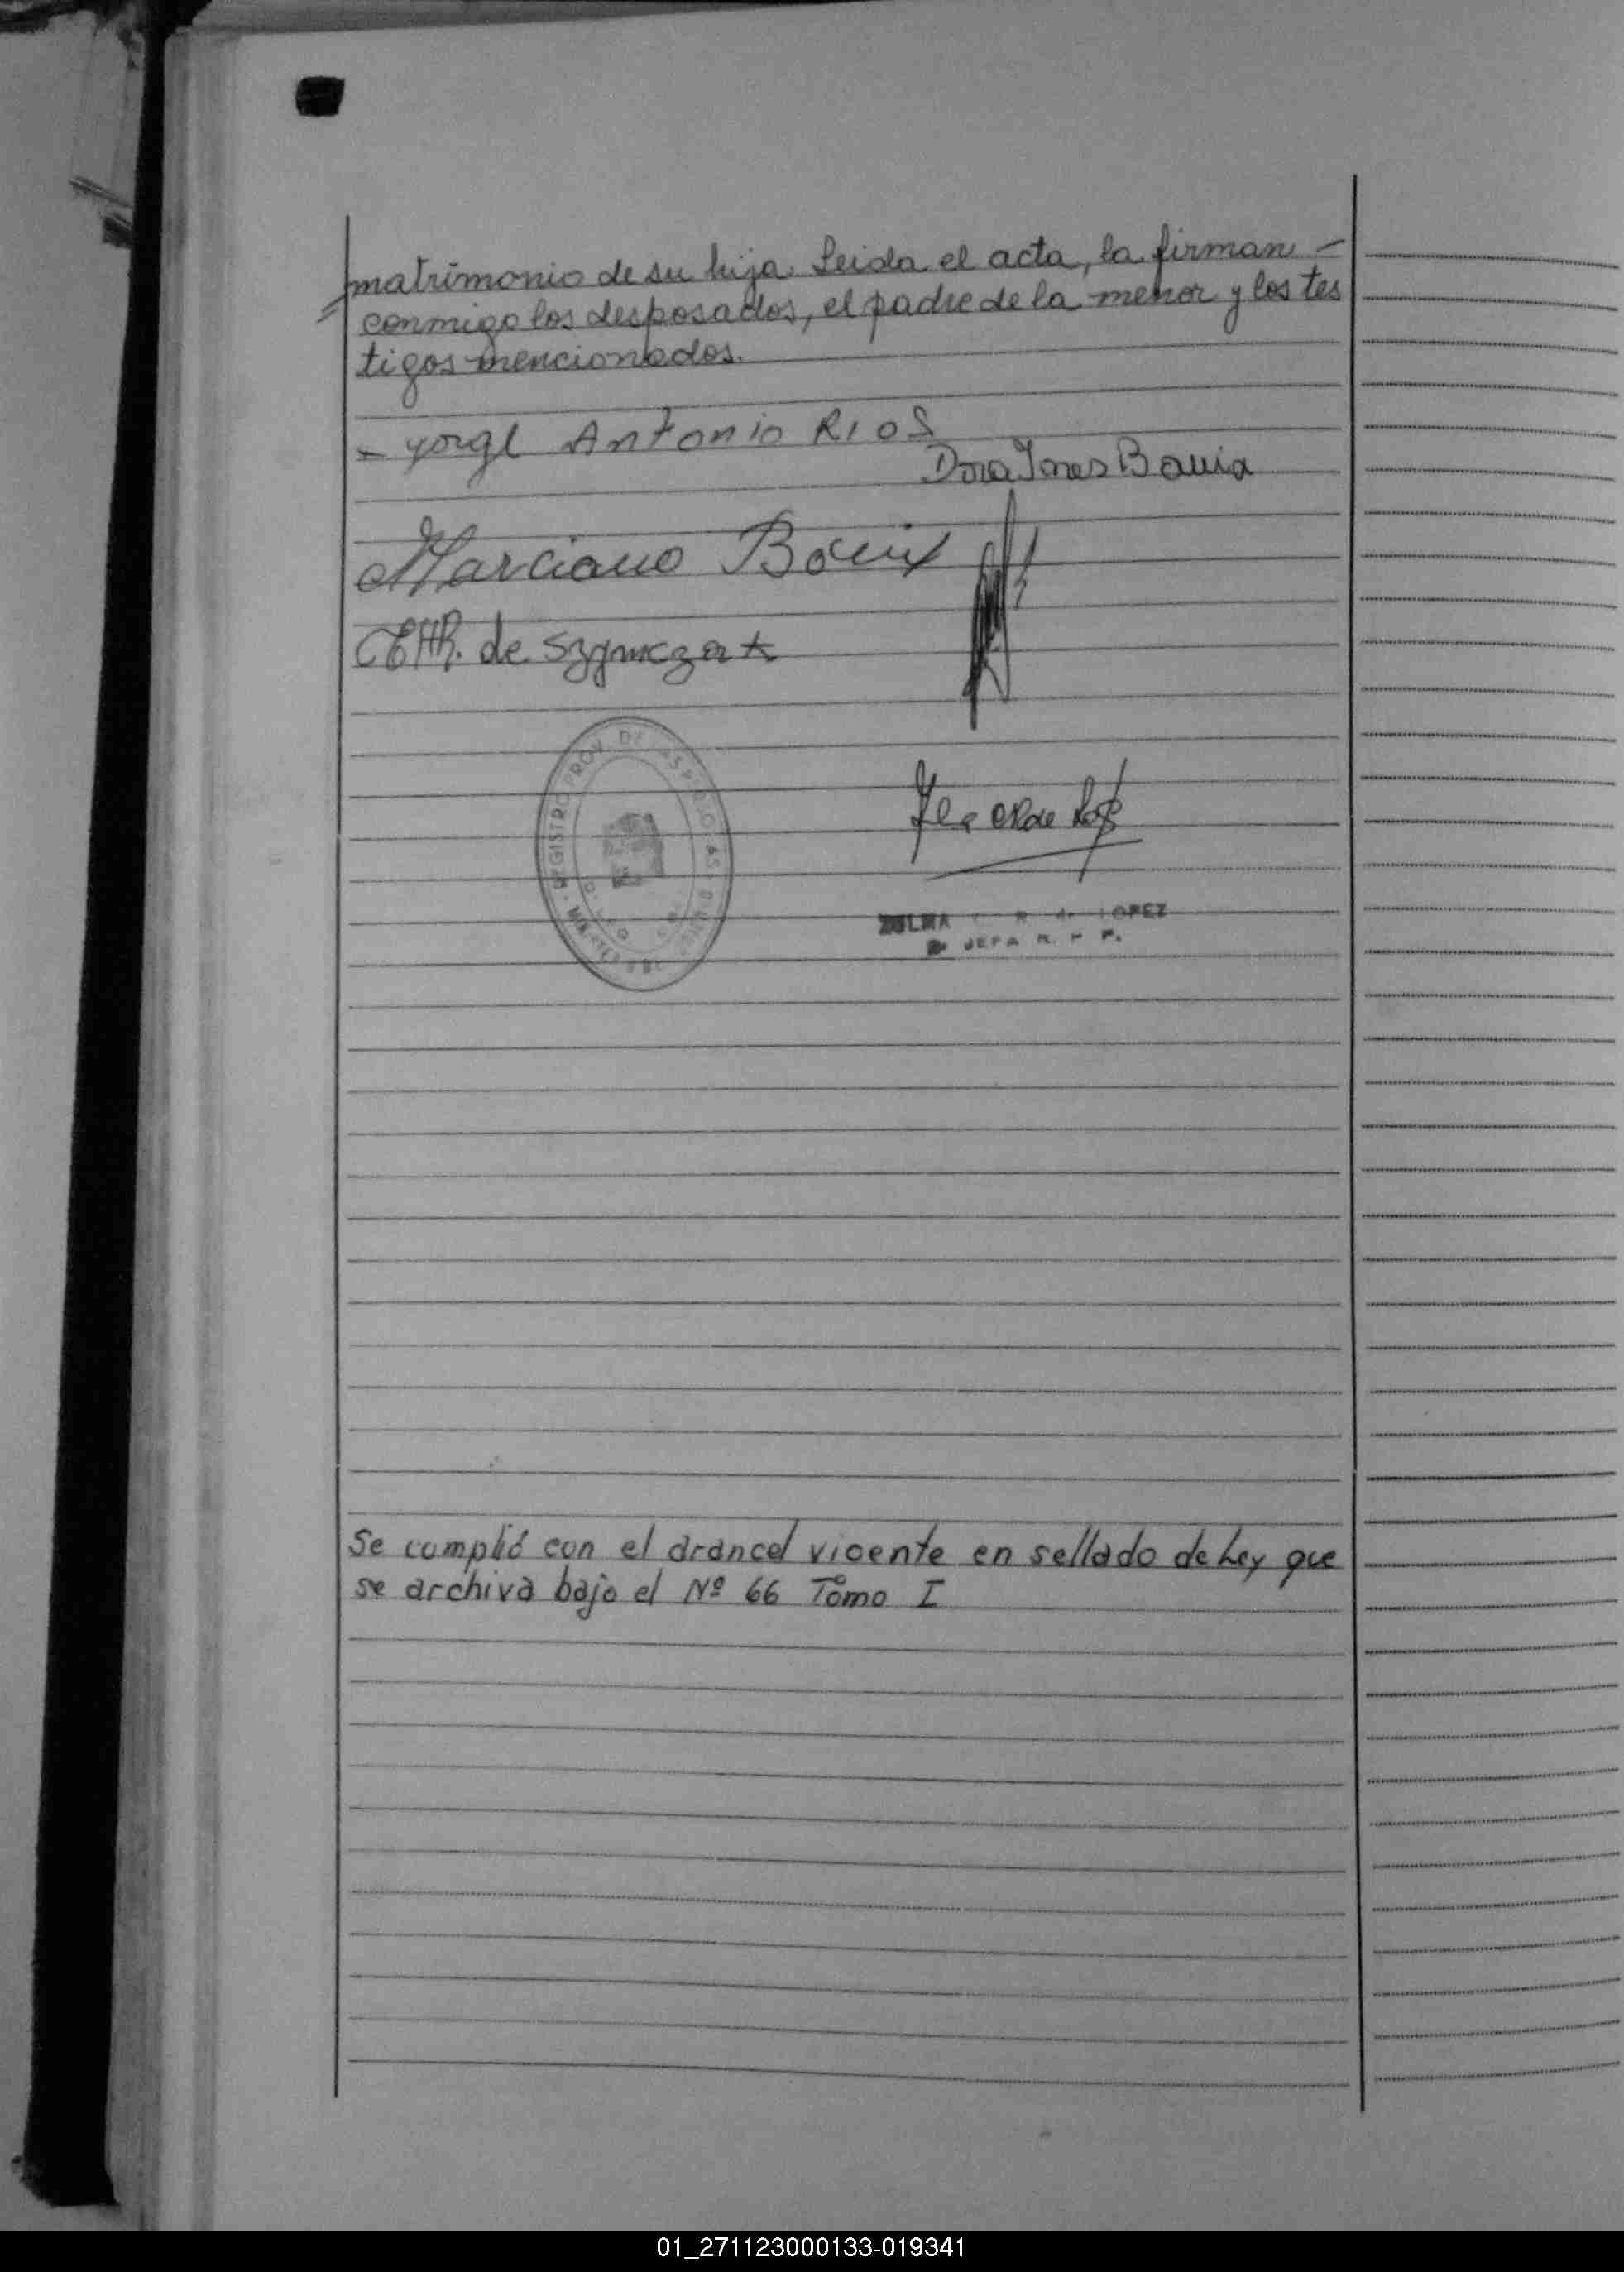 matrimonio de su hija. Leida el acta, la firman -
conmigo los desposados, el padre de la menor y los tes
tigos mencionados.
- yorge Antonio RIOS
Dora Ines Bauix
Marciano Bauix
de Szymczak
REGISTRO PROV. DE LAS PERSONAS
ZULMA R. de LOPEZ
JEFA R. P. P.
Se cumplió con el arancel vigente en sellado de Ley que
se archiva bajo el Nº 66 Tomo I
01_271123000133-019341